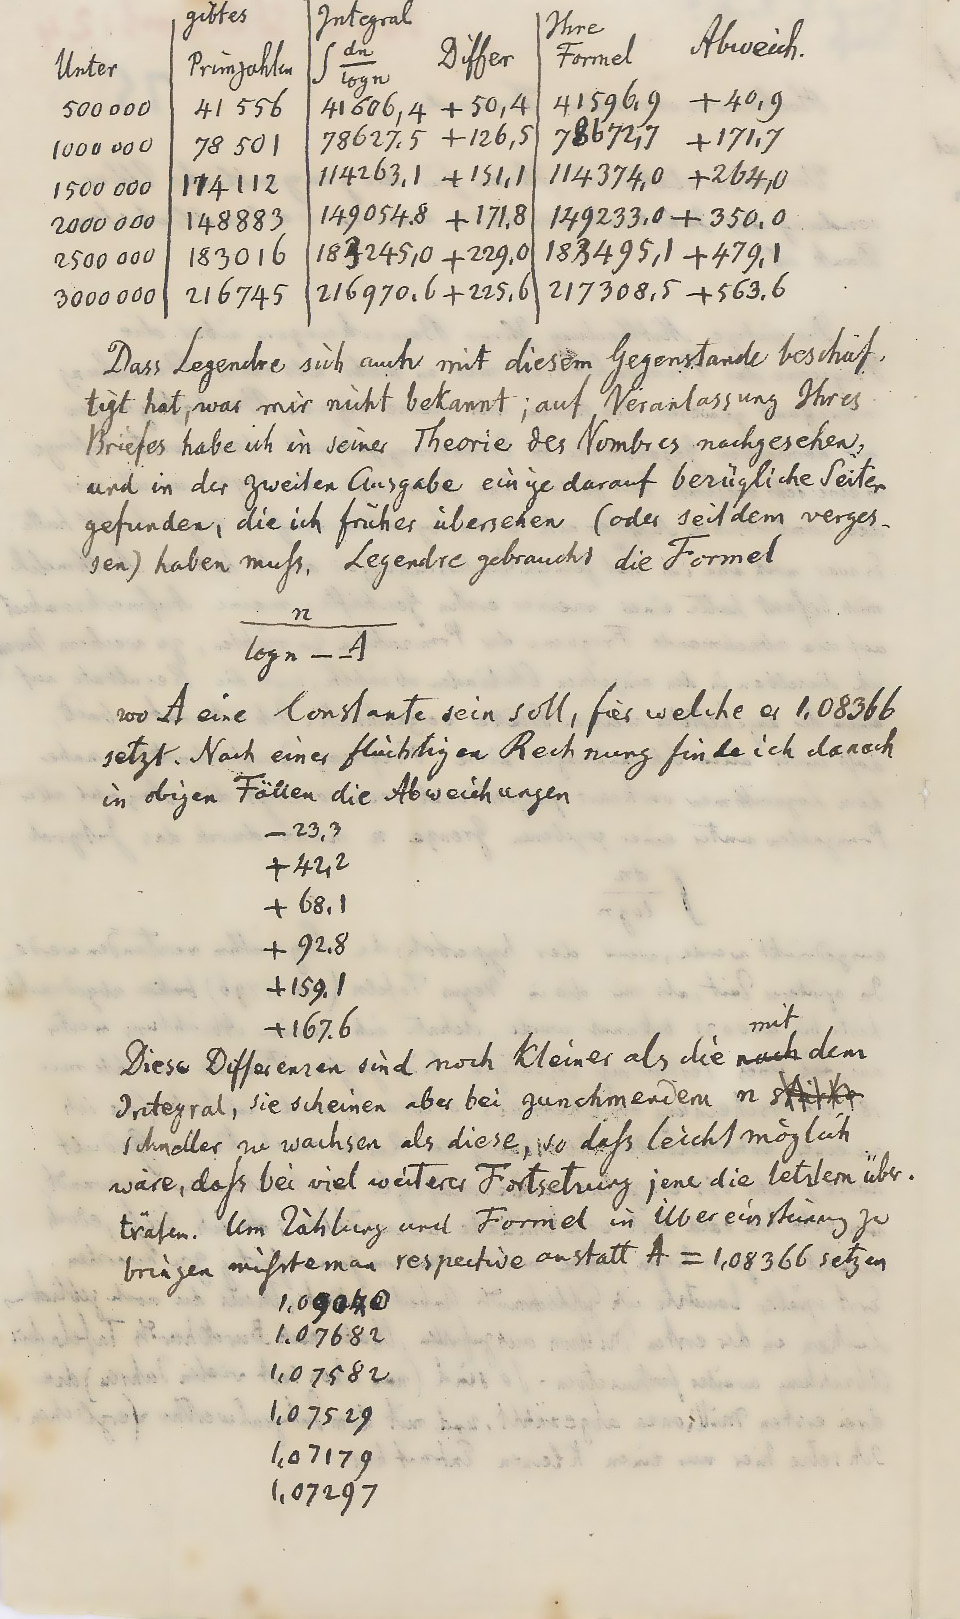 Unter | gibtes Primzahlen | Integral ∫ dn/log n | Differ | Ihre Formel | Abweich.
500 000 | 41 556 | 41606,4 | +50,4 | 41596,9 | +40,9
1000 000 | 78 501 | 78627.5 | +126,5 | 78672,7 | +171,7
1500 000 | 114112 | 114263,1 | +151,1 | 114374,0 | +264,0
2000 000 | 148883 | 149054.8 | +171.8 | 149233.0 | +350.0
2500 000 | 183016 | 183245,0 | +229.0 | 183495,1 | +479,1
3000000 | 216745 | 216970.6 | +225.6 | 217308.5 | +563.6
Dass Legendre sich auch mit diesem Gegenstande beschäf-
tigt hat, war mir nicht bekannt; auf Veranlassung Ihres
Briefes habe ich in seiner Theorie des Nombres nachgesehen,
und in der zweiten Ausgabe einige darauf bezügliche Seiten
gefunden, die ich früher übersehen (oder seitdem verges-
sen) haben muſs. Legendre gebraucht die Formel
n
log n – A
wo A eine Constante sein soll, für welche er 1,08366
setzt. Nach einer flüchtigen Rechnung finde ich danach
in obigen Fällen die Abweichungen
– 23,3
+ 42,2
+ 68,1
+ 92.8
+ 159,1
+ 167.6
Diese Differenzen sind noch kleiner als die nach mit dem
Integral, sie scheinen aber bei zunehmendem n stärke
schneller zu wachsen als diese, so daſs leicht möglich
wäre, daſs bei viel weiterer Fortsetzung jene die letztern über-
träfen. Um Zählung und Formel in Übereinstimmung zu
bringen müſste man respective anstatt A = 1,08366 setzen
1,09040
1.07682
1,07582
1,07529
1,07179
1,07297